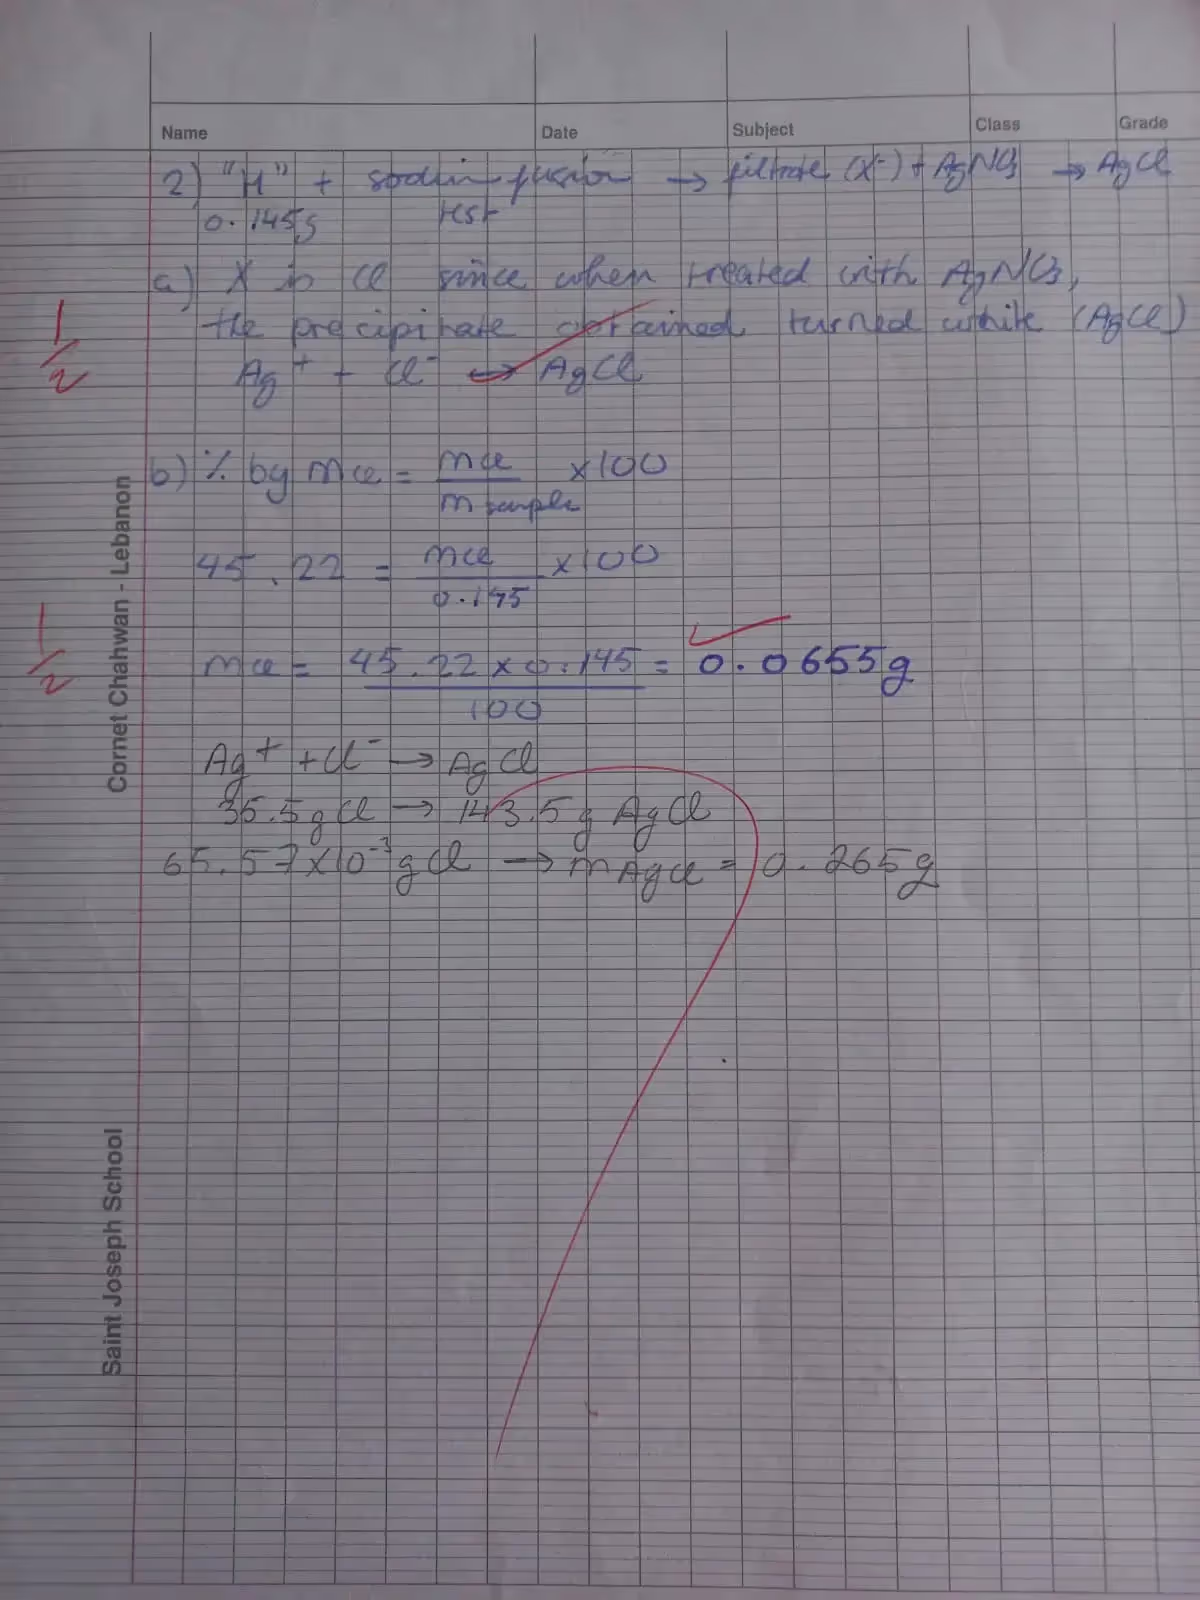 Name Date Subject Class Grade
2) "H" + sodium fusion → filtrate (X⁻) + AgNO3 → AgCl
0.145g test
a) X is Cl since when treated with AgNO3,
the precipitate obtained turned white (AgCl)
1/2
Ag⁺ + Cl⁻ → AgCl
b) % by mCl = mCl / m sample × 100
45.22 = mCl / 0.145 × 100
1/2
mCl = 45.22 × 0.145 / 100 = 0.0655g
Ag⁺ + Cl⁻ → AgCl
35.5g Cl → 143.5g AgCl
65.57 × 10⁻³ g Cl → m AgCl = 0.265g
Cornet Chahwan - Lebanon
Saint Joseph School